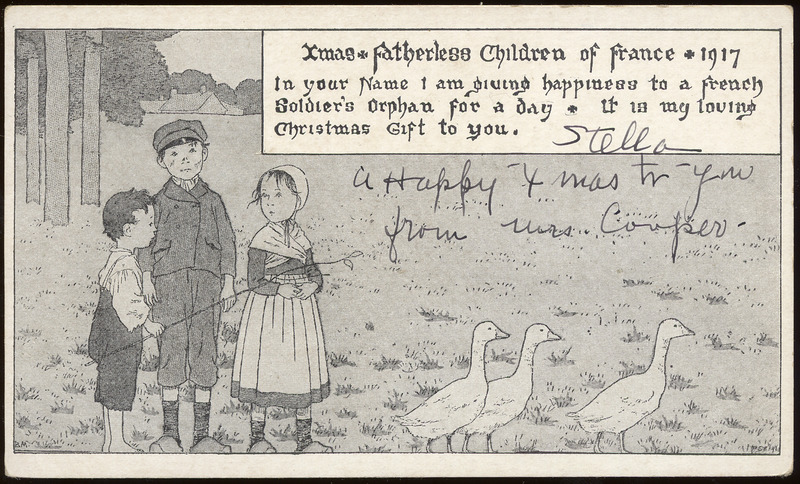 Xmas * Fatherless Children of France * 1917
In your Name I am giving happiness to a French
Soldier's Orphan for a day * It is my loving
Christmas Gift to you.
Stella
a Happy Xmas to you
from Mrs. Cooper-